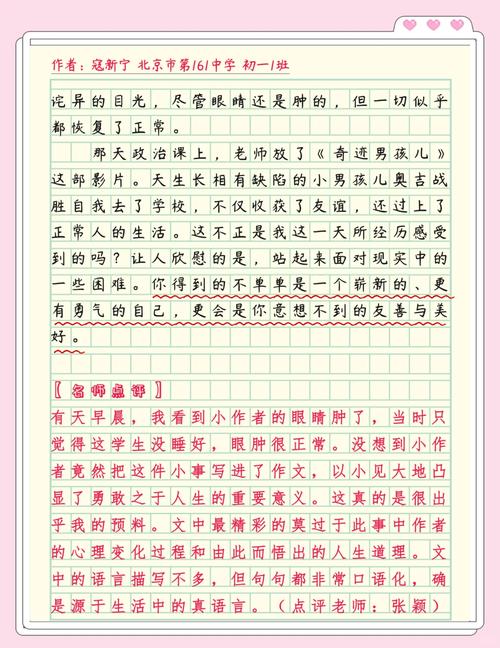 作者：寇新宁 北京市第161中学 初一1班
诧异的目光，尽管眼睛还是肿的，但一切似乎
都恢复了正常。
那天政治课上，老师放了《奇迹男孩儿》
这部影片。天生长相有缺陷的小男孩儿奥吉战
胜自我去了学校，不仅收获了友谊，还过上了
正常人的生活。这不正是我这一天所经历感受
到的吗？让人欣慰的是，站起来面对现实中的
一些困难。你得到的不单单是一个崭新的、更
有勇气的自己，更会是你意想不到的友善与美
好。
〖名师点评〗
有天早晨，我看到小作者的眼睛肿了，当时只
觉得这学生没睡好，眼肿很正常。没想到小作
者竟然把这件小事写进了作文，以小见大地凸
显了勇敢之于人生的重要意义。这真的是很出
乎我的预料。文中最精彩的莫过于此事中作者
的心理变化过程和由此而悟出的人生道理。文
中的语言描写不多，但句句都非常口语化，确
是源于生活中的真语言。（点评老师：张颖）